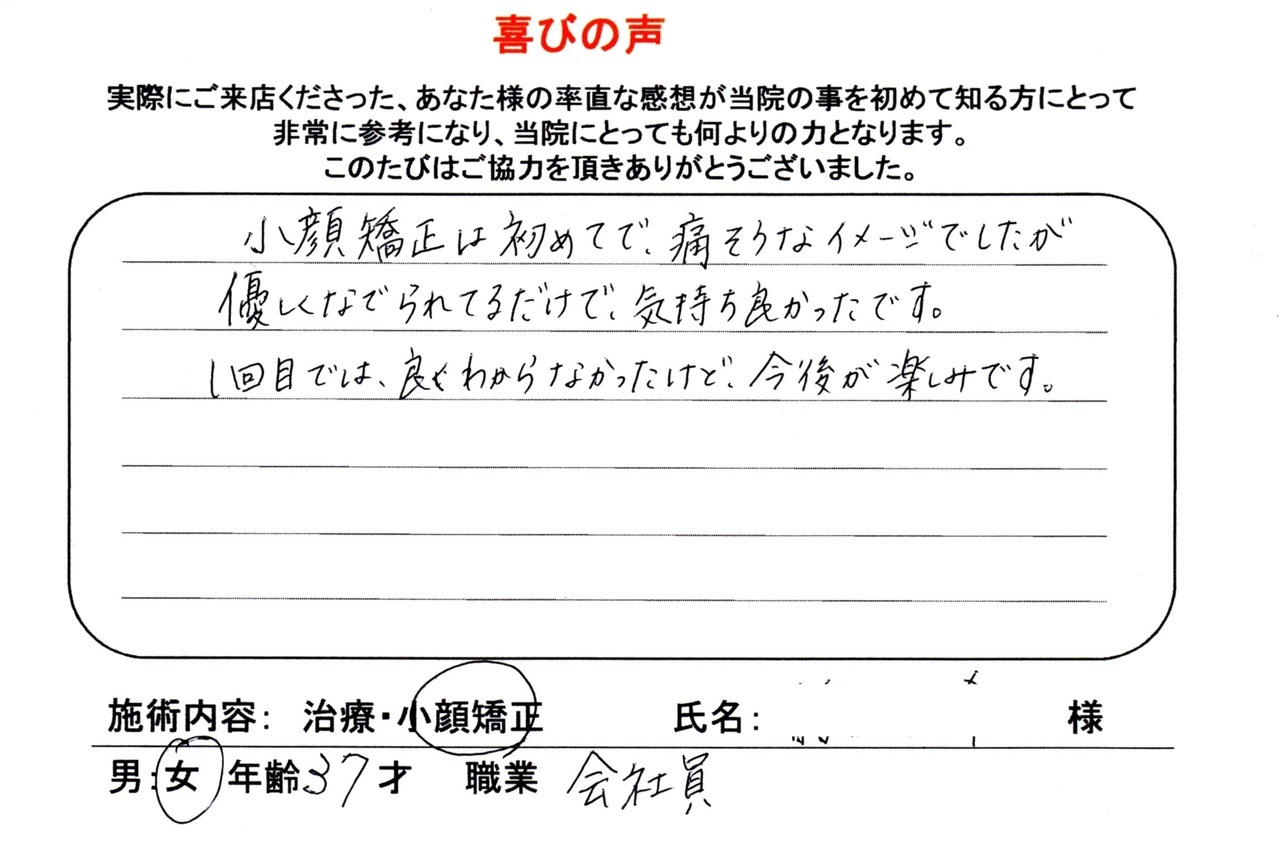 喜びの声
実際にご来店くださった、あなた様の率直な感想が当院の事を初めて知る方にとって
非常に参考になり、当院にとっても何よりの力となります。
このたびはご協力を頂きありがとうございました。
小顔矯正は初めてで、痛そうなイメージでしたが
優しくなでられてるだけで、気持ち良かったです。
1回目では、良くわからなかったけど、今後が楽しみです。
施術内容: 治療・小顔矯正 氏名: 様
男:女 年齢37才 職業 会社員